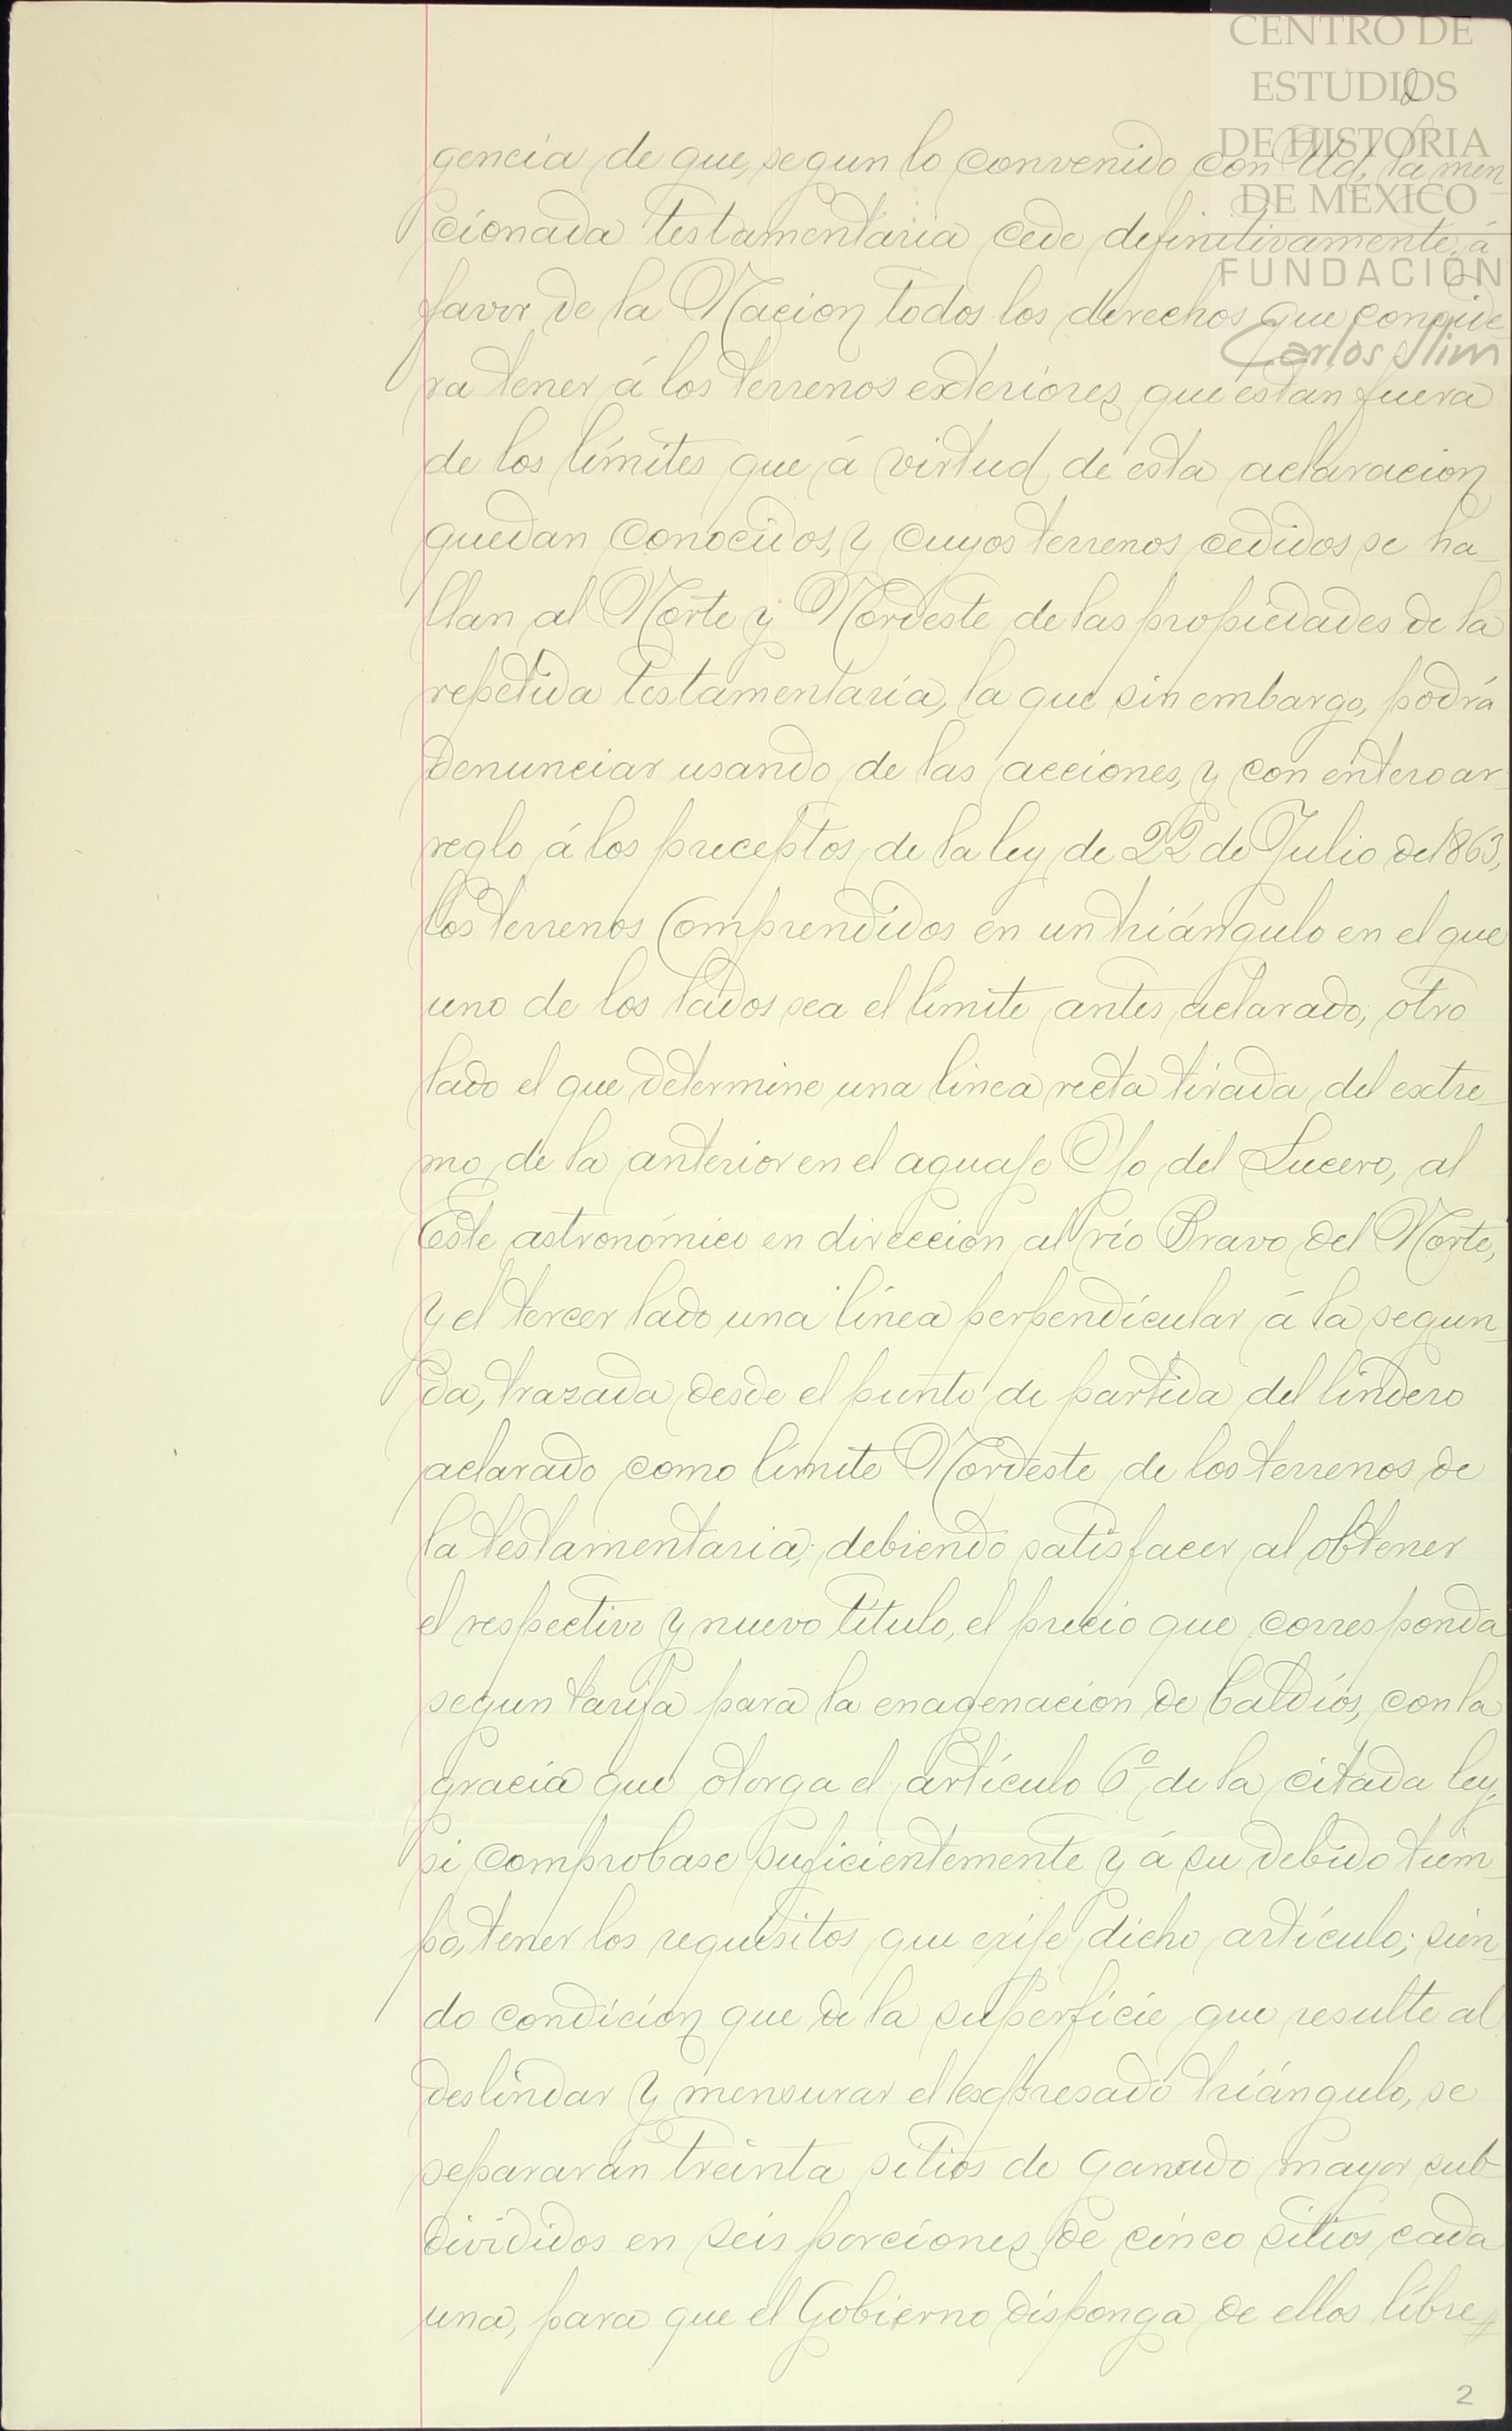 CENTRO DE
ESTUDIOS
DE HISTORIA
DE MÉXICO
FUNDACIÓN
Carlos Slim
2
gencia de que, segun lo convenido con Ud, la men
cionada testamentaria cede definitivamente, á
favor de la Nacion todos los derechos que conside
ra tener á los terrenos exteriores que estan fuera
de los límites que á virtud de esta aclaracion
quedan conocidos, y cuyos terrenos cedidos se ha-
llan al Norte y Nordeste de las propiedades de la
repetida testamentaría, la que sin embargo, podrá
denunciar usando de las acciones, y con entero ar-
reglo á los preceptos de la ley de 22 de Julio de 1863,
los terrenos comprendidos en un triángulo en el que
uno de los lados sea el límite antes aclarado, otro
lado el que determine una linea recta tirada del extre-
mo de la anterior en el aguaje Ojo del Lucero, al
Este astronómico en direccion al río Bravo del Norte,
y el tercer lado una línea perpendicular á la segun-
da, trazada desde el punto de partida del lindero
aclarado como límite Nordeste de los terrenos de
la testamentaria; debiendo satisfacer al obtener
el respectivo y nuevo título, el precio que corresponda
segun tarifa para la enagenacion de baldíos, con la
gracia que otorga el artículo 6º de la citada ley,
si comprobase suficientemente y á su debido tiem
po, tener los requisitos que exije dicho artículo; sien
do condicion que de la superficie que resulte al
deslindar y mensurar el expresado triángulo, se
separarán treinta sitios de ganado mayor sub-
divididos en seis porciones de cinco sitios cada
una, para que el Gobierno disponga de ellos libre-
2